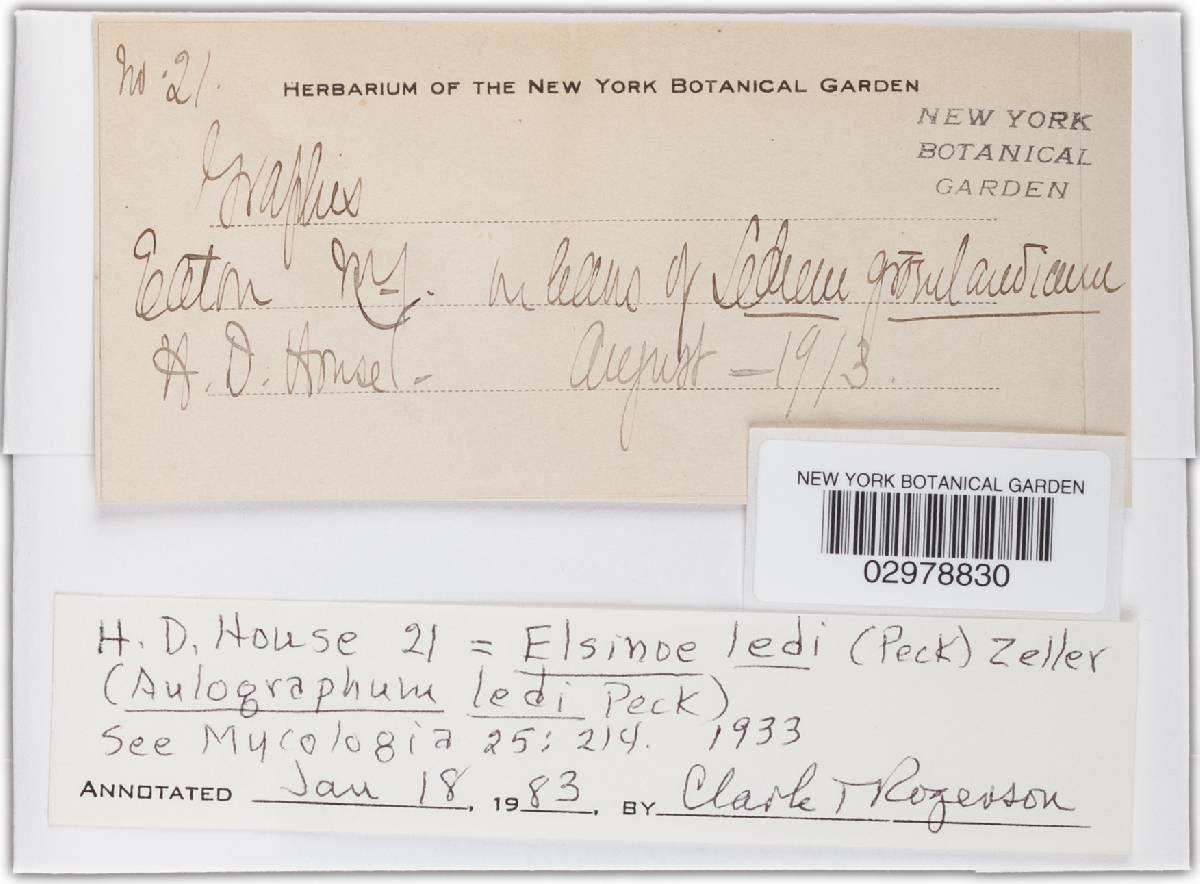 No. 21.
HERBARIUM OF THE NEW YORK BOTANICAL GARDEN
NEW YORK
BOTANICAL
GARDEN
Graphis
Eaton N.Y. on leaves of Ledum groenlandicum
H. D. House - August - 1913.
NEW YORK BOTANICAL GARDEN
02978830
H. D. House 21 = Elsinoe ledi (Peck) Zeller
(Aulographum ledi Peck)
See Mycologia 25: 214. 1933
ANNOTATED Jan 18, 1983, BY Clark T Rogerson